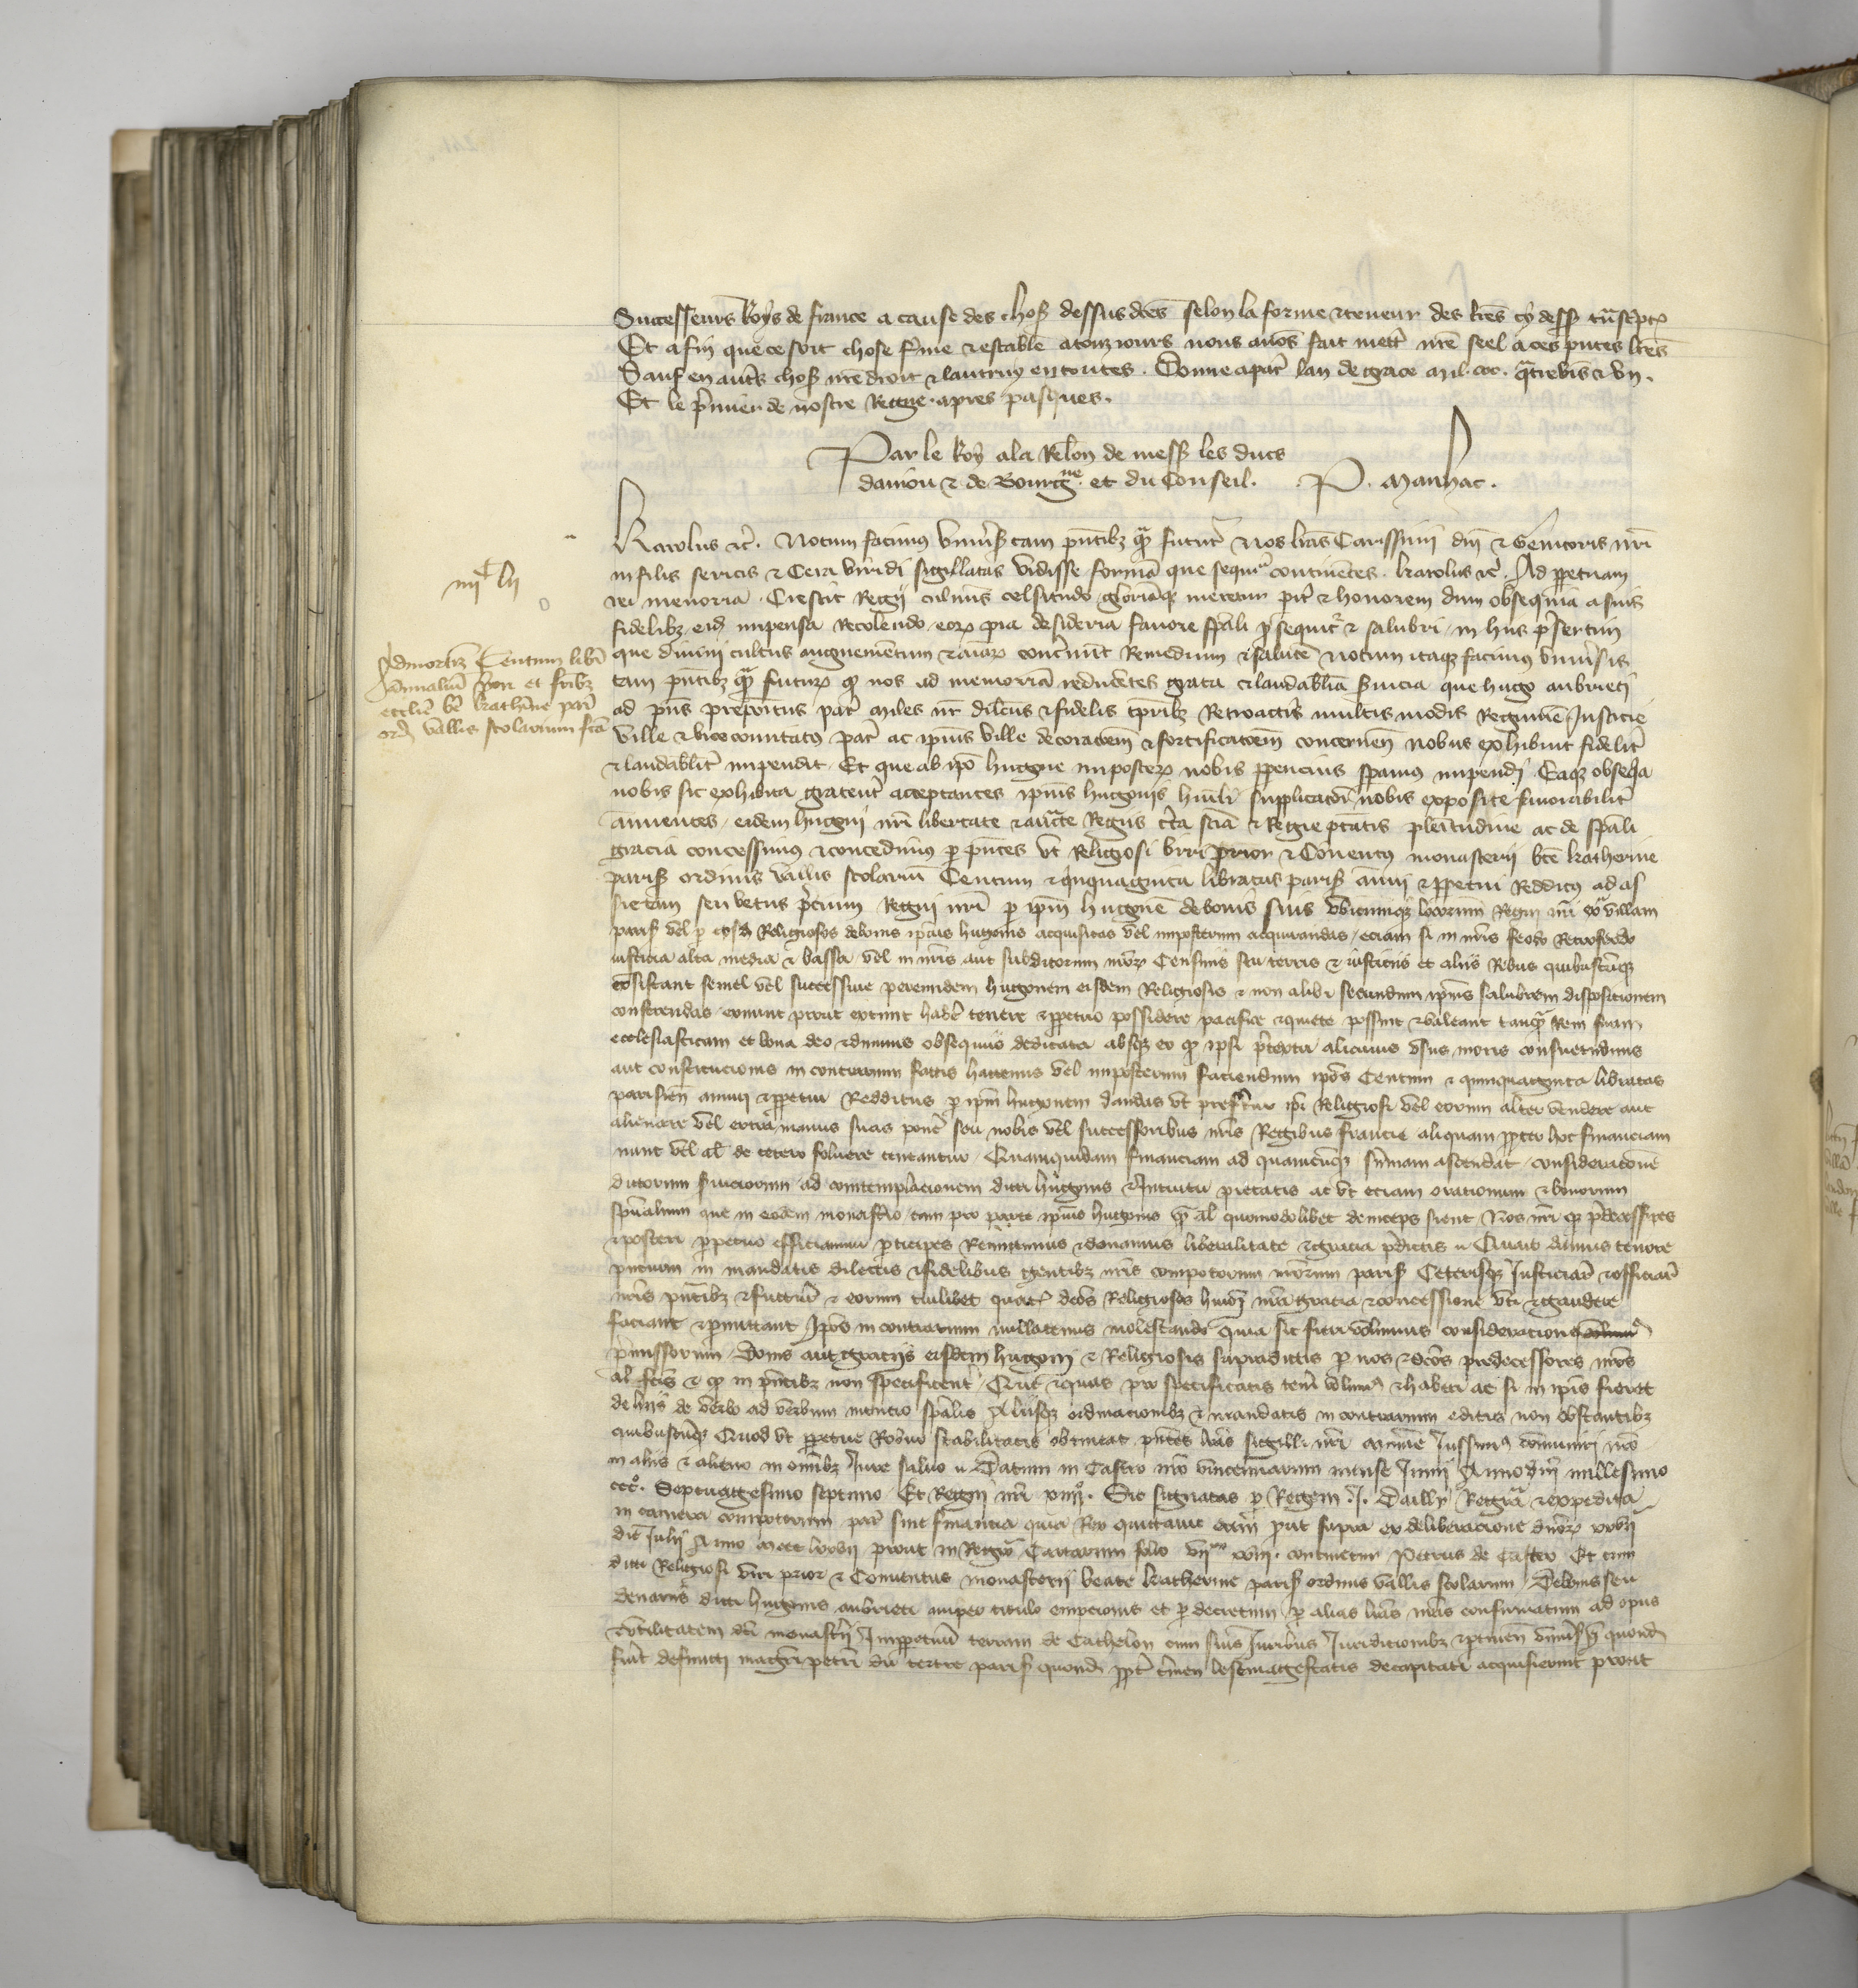 Successeurs Roys de france a cause des chos dessusdces selon la forme & teneur des lres cy dess tnscptes
Et afin que ce soit chose ferme & estable a touz iours nous auons fait mettre nre seel a ces pntes lres
Sauf en autres chos nre droit & lautruy en toutes. Donne a par lan de grace mil. ccc. quatrevins & vn.
Et le premier de nostre Regne. apres pasques.
Par le Roy a la Relon de mess les ducs
daniou & de Bourgne. et du Conseil. P. Manhac.
Karolus &c. Notum facimus vniuersis tam pntibz quam futur Nos lras Carissimi dni & Genitoris nri
in filis sericis & Cera viridi sigillatas vidisse formam que sequitur continentes. karolus &c. Ad perpetuam
rei memoriam. Crescit Regii culminis celsitudo gloriamque meretur pariter & honorem dum obsequia a suis
fidelibz eid impensa Recolendo eorum pia desideria fauore spali prosequitur & salubri in hiis presertim
que diuini cultus augmentum & animarum concernunt Remedium & salutem Notum itaque facimus vniuersis
tam pntibz quam futuris quod nos ad memoriam reducentes grata & laudabilia seruicia que hugo aubrieti
ad pns prepositus par miles nr dilcus & fidelis tpribz Retroactis multis modis Regimen Justicie
ville & vicecomitatus par ac ipius ville decoracionem & fortificacionem concernen nobis exhibuit fideliter
& laudabiliter impendit Et que ab ipo hugone imposterum nobis speramus impendi Eaque obsequia
nobis sic exhibita gratenter acceptantes ipius hugonis humili supplicacioni nobis exposite fauorabiliter
annuentes eidem hugoni nri libertate & auctte Regiis certa scia & Regie ptatis plenitudine ac de spali
gracia concessimus & concedimus per pntes vt Religiosi viri prior & Conuentus monasterii bte katherine
paris ordinis vallis scolarium Centum & quinquaginta libratas paris annui & perpetui Redditus ad as
sietam seu vetus precium Regni nri per ipm hugonem de bonis suis vbicumque locorum Regni nri extra villam
paris vel per eosd Religiosos de bonis ipius hugonis acquisitas vel imposterum acquirandas eciam si in nris feodo Retrofeodo
iusticia alta media & bassa vel in nris aut subditorum nrorum Censiuis seu terris & iusticiis et aliis Rebus quibuscumque
consistant semel vel successiue per eumdem hugonem eisdem Religiosis & non alibi secundum ipius salubrem disposicionem
conferendas habere tenere & perpetuo possidere pacifice & quiete possint & valeant tanquam Rem suam
ecclesiasticam et bona deo & diuinis obsequiis dedicata absque eo quod ipsi pretextu alicuius vsus moris consuetudinis
aut constitucionis in contrarium factis hactenus vel imposterum faciendum ipos Centum & quinquaginta libratas
parisien annui & perpetui Redditus per ipm hugonem dandas vt prefertur ipi Religiosi vel eorum alter vendere aut
alienare vel extra manus suas ponere seu nobis vel successoribus nris Regibus francie aliquam propter hoc financiam
nunc vel al de cetero soluere teneantur Quamquidam financiam ad quamcumque summam ascendat consideracione
dictorum seruiciorum ad comtemplacionem dicti hugonis & Intuitu pietatis ac vt eciam orationum & bonorum
spualium que in eodem monasterio tam pro parte ipius hugonis quam al quomodolibet deinceps fient Nos nri que predecessores
& posteri perpetuo efficiamur participes Remittimus & donamus liberalitate & gracia predictis Quare damus tenore
pncium in mandatis dilectis & fidelibus gentibz nris compotorum nrorum paris Ceterisque Justiciar & officiar
nris pntibz & futur & eorum cuilibet quat dcos Religiosos huiusmodi nra gracia & concessione vti & gaudere
faciant & permittant Ipos in contrarium nullatenus molestando quia sic fieri volumus consideracione
premissorum Donis aut graciis eisdem hugoni & Religiosis supradictis per nos & dcos predecessores nros
al fcis & quod in pntibz non specificent Que & quas pro specificatis teneri volumus & haberi ac si in ipis fieret
de hiis de verbo ad verbum mencio spalis Aliisque ordinacionibz & mandatis in contrarium editis non obstantibz
quibuscumque Quod vt perpetue Robur stabilitatis obtineat pntes lras sigilli nri munimine Jussimus communiri nro
in aliis & alieno in omnibz Jure saluo Datum in Castro nro vincennarum mense Junii Anno dni millesimo
ccc°. Septuagesimo septimo Et Regni nri xiiij°. Sic signatas per Regem J. Dailly Regra & expedita
in camera compotorum par sine financia quia Rex quittauit eam prout supra ex deliberacione dnorum xxvij
die Julii Anno mccc lxxvij prout in Registro Cartarum folio contmetur Petrus de Castro Et cum
dicti Religiosi viri prior & Conuentus monasterii beate katherine paris ordinis vallis scolarum De bonis seu
denariis dicti hugonis aubrieti nuper titulo empcionis et per decretum per alias lras nras confirmatum ad opus
& vtilitatem dcti monasterii Imperpetuum terram de Cathelon cum suis Juribus Juridicionibz & ptinen vniuersis que quond
fuerunt defuncti magri petri du tertre paris quond propter crimen lesemagestatis decapitati acquisierint prout
iiijc lij
Admortiz Centum libr
annualium prior et fribz
ecclie be katherine par
ord vallis scolarium fca